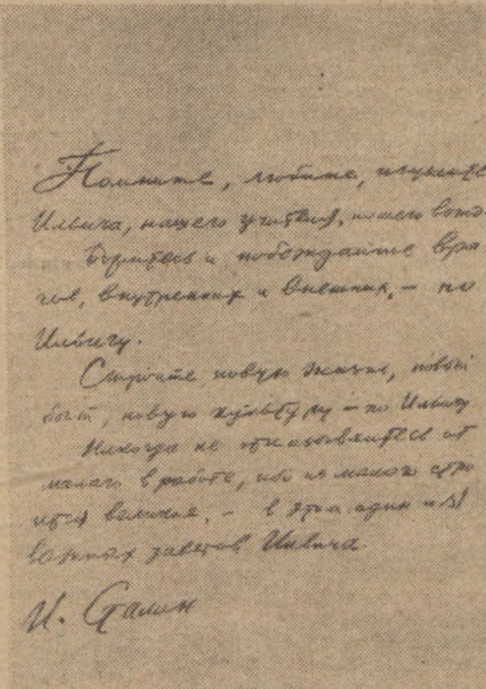 Помните, любите, изучайте
Ильича, нашего учителя, нашего вожд
Боритесь и побеждайте вра
гов, внутренних и внешних, – по
Ильичу.
Стройте новую жизнь, новый
быт, новую культуру – по Ильичу
Никогда не отказывайтесь от
малого в работе, ибо из малого стро
ится великое, – в этом один из
важных заветов Ильича.
И. Сталин